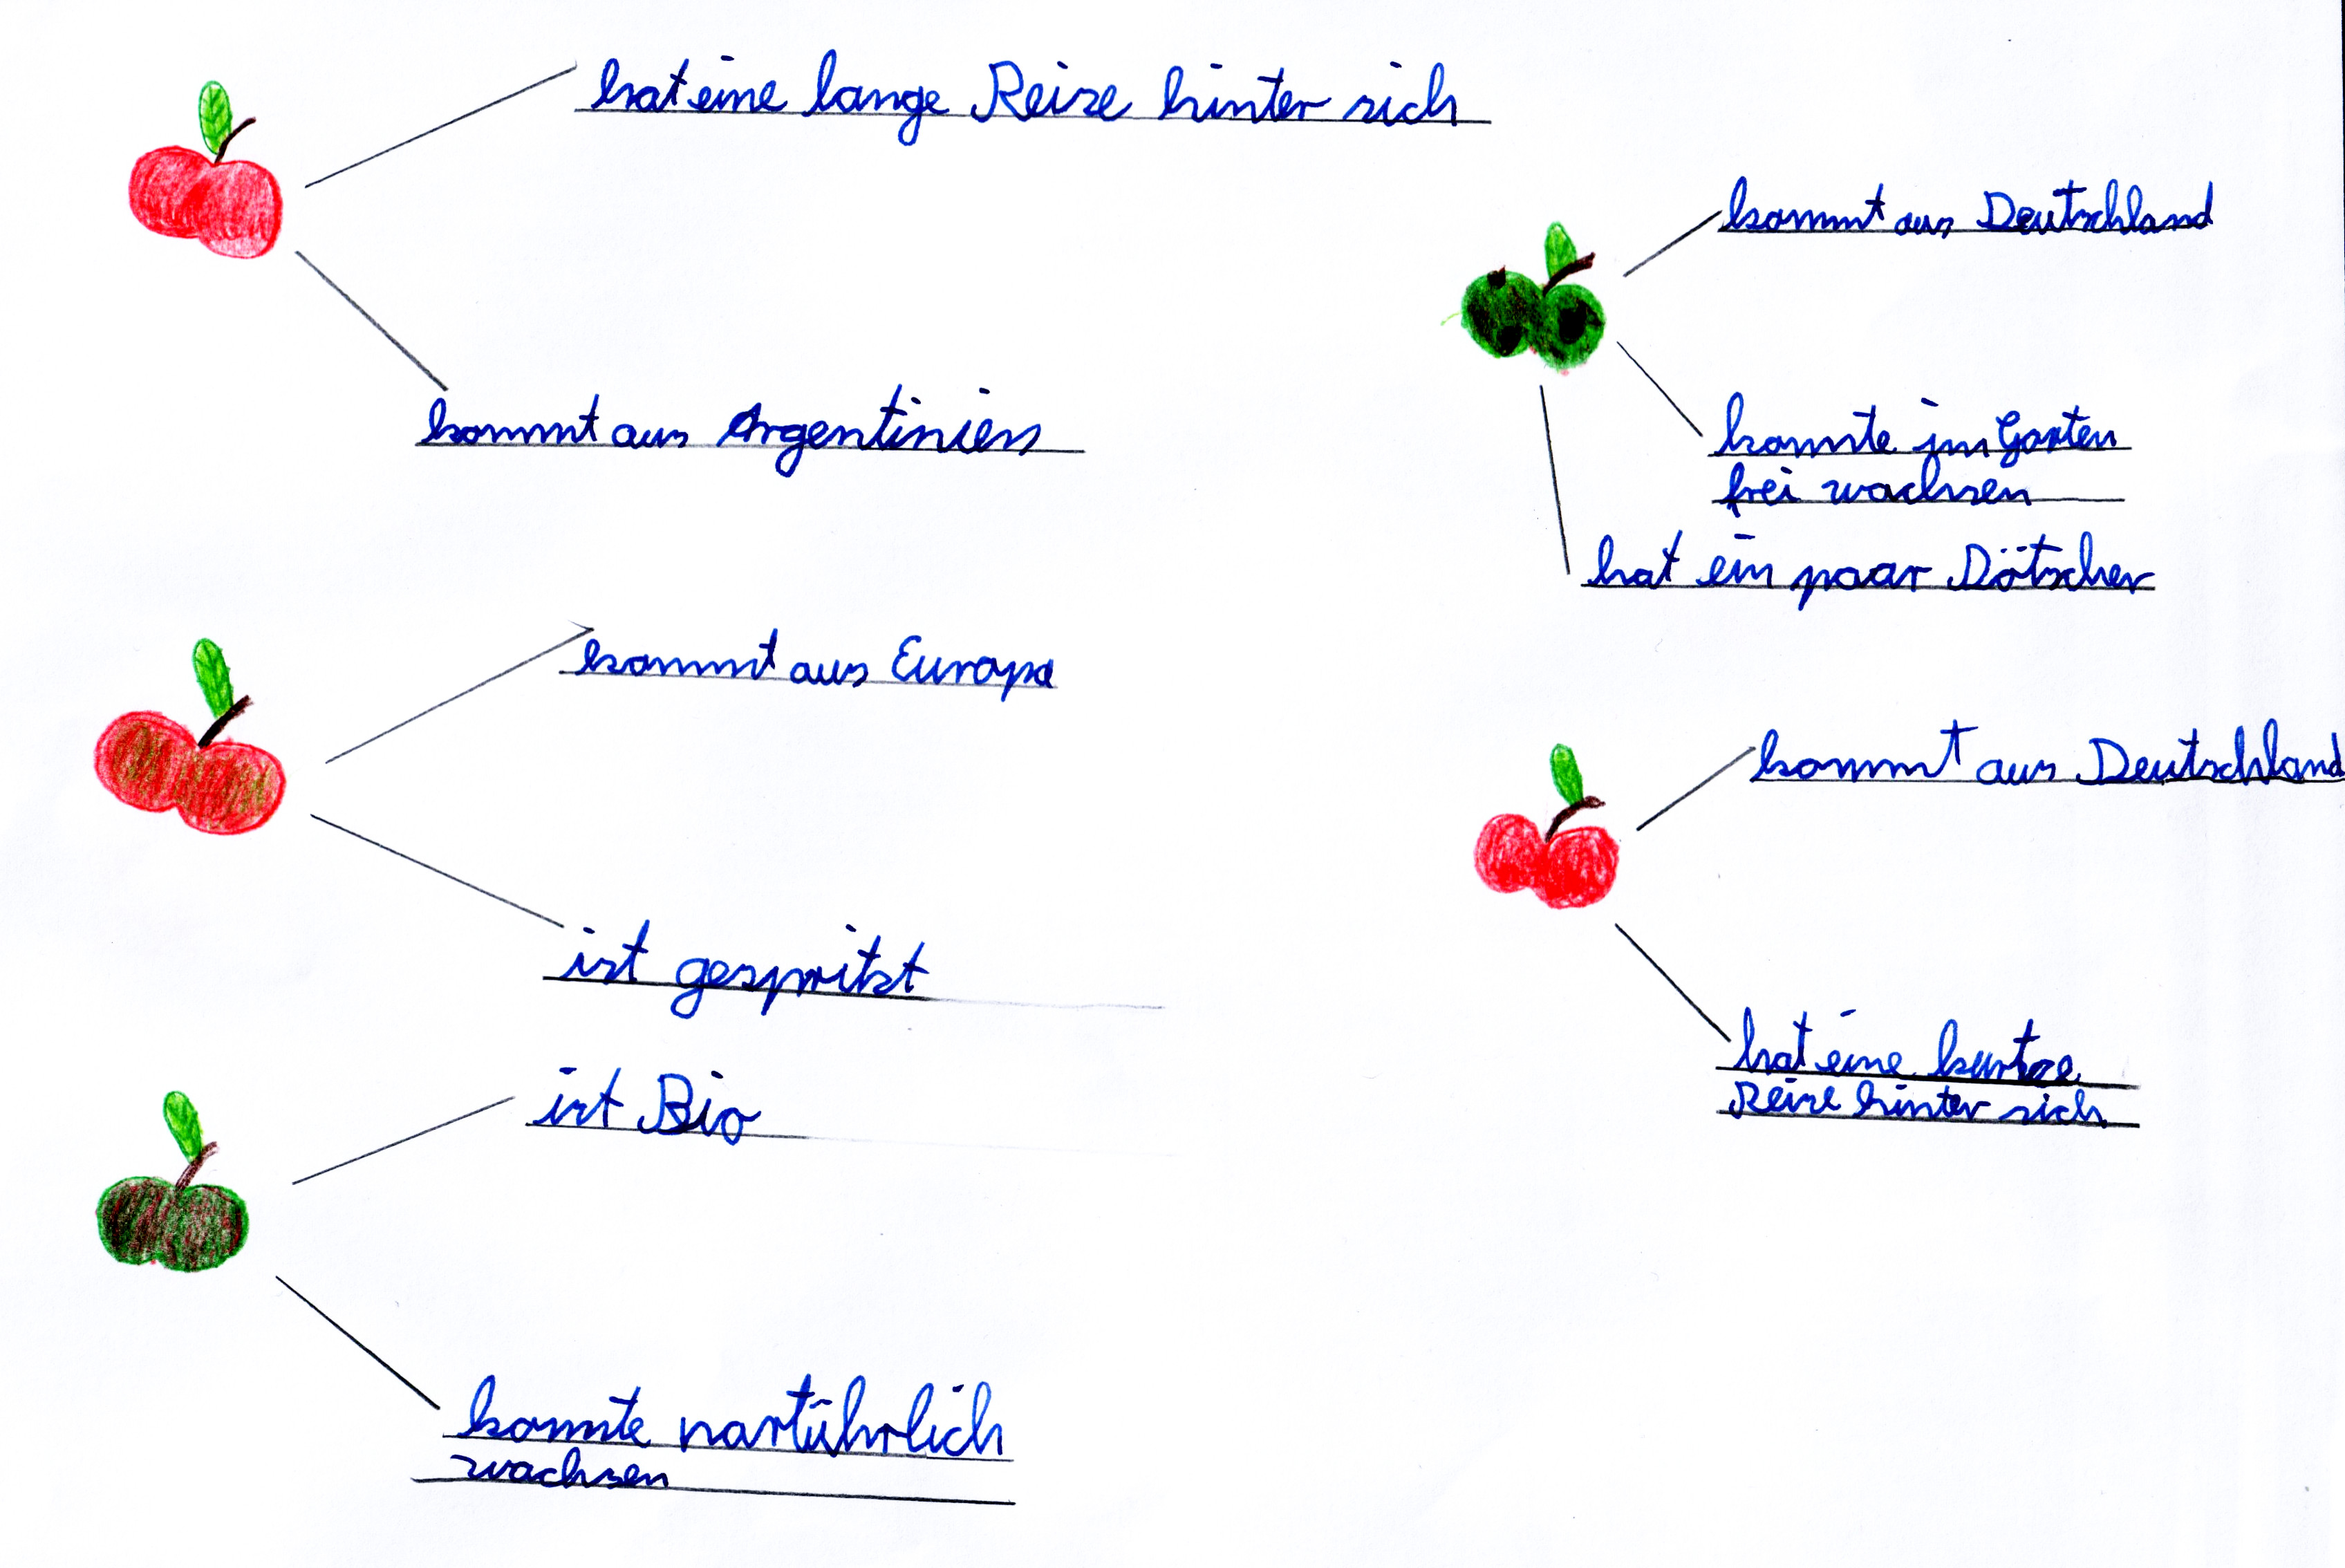 hat eine lange Reise hinter sich
kommt aus Argentinien
kommt aus Europa
ist gespritzt
ist Bio
konnte nartührlich
wachsen
kommt aus Deutschland
konnte im Garten
frei wachsen
hat ein paar Dötscher
kommt aus Deutschland
hat eine kurtze
Reise hinter sich